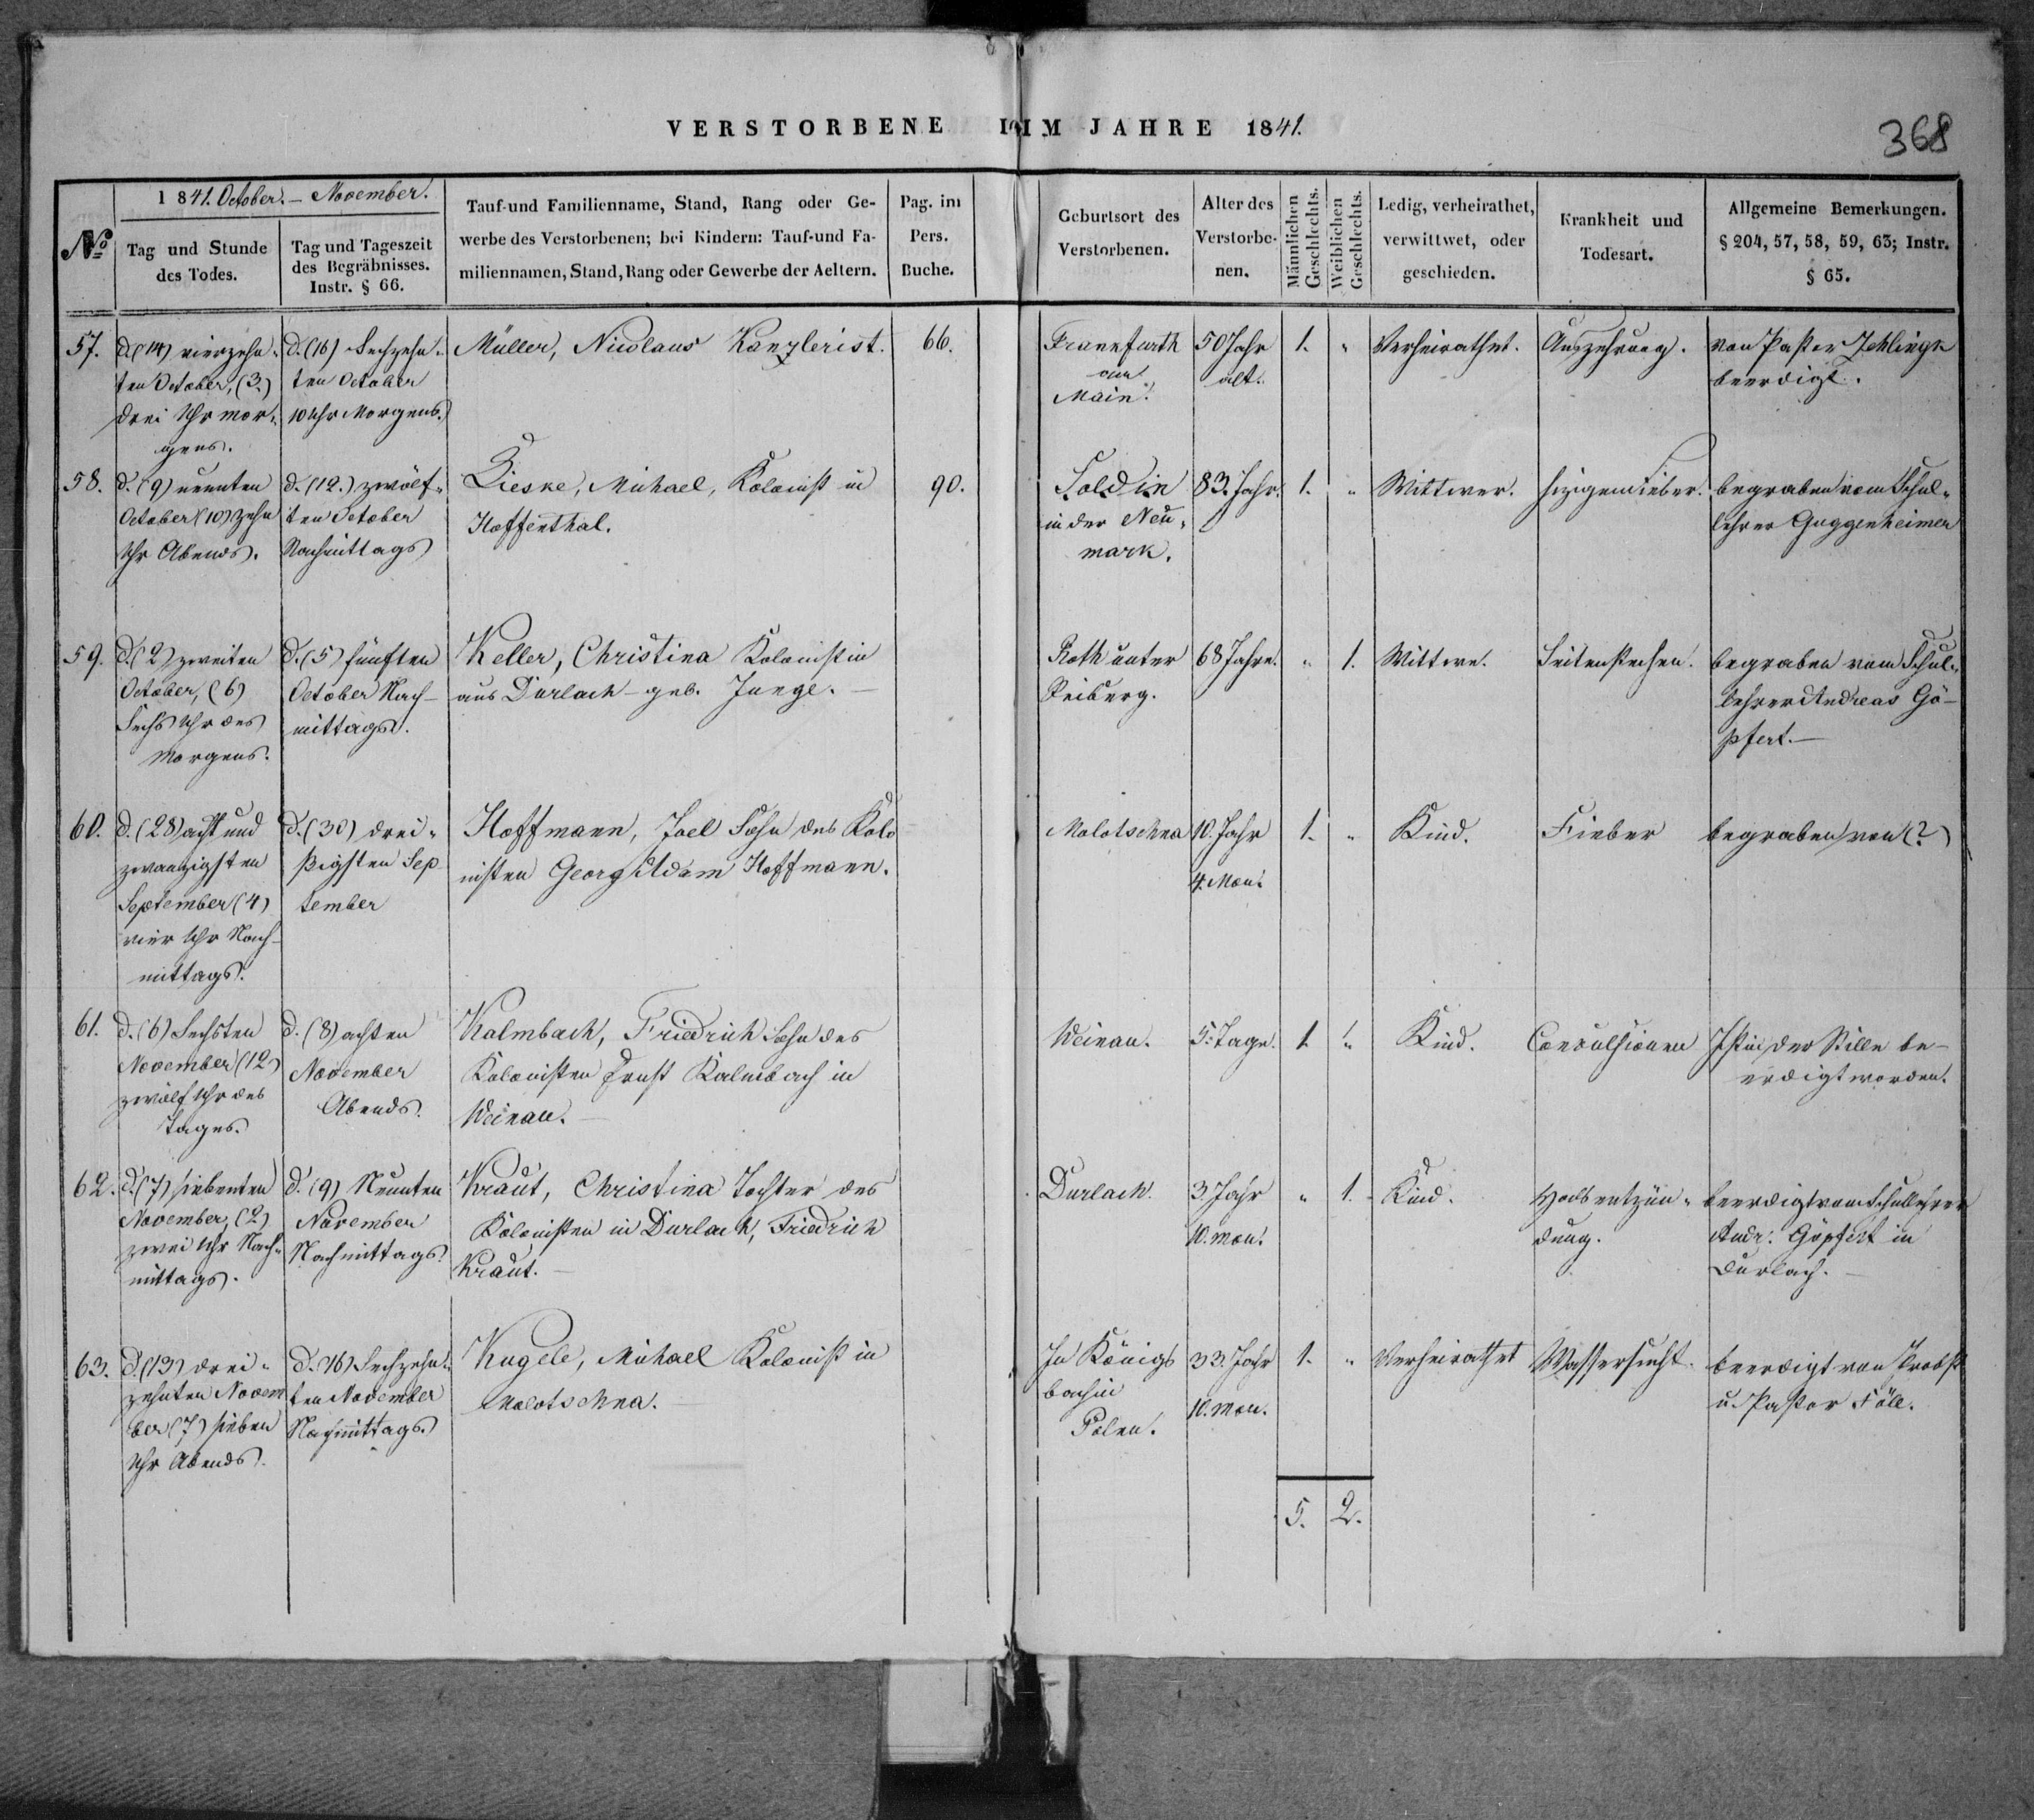 VERSTORBENE IM JAHRE 1841.
368
No
1841. October. - November.
Tag und Stunde
des Todes.
Tag und Tageszeit
des Begräbnisses.
Instr. § 66.
Tauf-und Familienname, Stand, Rang oder Ge-
werbe des Verstorbenen; bei Kindern: Tauf-und Fa-
miliennamen, Stand, Rang oder Gewerbe der Aeltern.
Pag. im
Pers.
Buche.
Geburtsort des
Verstorbenen.
Alter des
Verstorbe-
nen.
Männlichen
Geschlechts.
Weiblichen
Geschlechts.
Ledig, verheirathet,
verwittwet, oder
geschieden.
Krankheit und
Todesart.
Allgemeine Bemerkungen.
§ 204, 57, 58, 59, 63; Instr.
§ 65.
57.
d. (14) vierzehn-
ten October, (3.)
drei Uhr mor-
gens.
d. (16) Sechzehn-
ten October
10 Uhr Morgens.
Müller, Nicolaus Kanzlerist.
66.
Frankfurth
am
Main.
50 Jahr
alt.
1.
"
Verheirathet.
Auszehrung.
von Pastor
beerdigt.
58.
d. (9) neunten
October (10) zehn
Uhr Abends.
d. (12.) zwölf-
ten October
Nachmittags
Lieske, Michael, Kolonist in
Hoffenthal.
90.
Soldin
in der Neu-
mark.
83. Jahr.
1.
"
Wittwer.
hizigem Fieber.
begraben vom Schul-
lehrer Guggenheimer
59.
d. (2) zweiten
October, (6)
Sechs Uhr des
Morgens.
d. (5) fünften
October Nach-
mittags.
Keller, Christina Kolonistin
aus Durlach - geb. Junge. -
Roth unter
68 Jahre.
"
1.
Wittwe.
Seitenstechen.
begraben vom Schul-
lehrer Andreas Gö-
pfert. -
60.
d. (28) acht und
zwanzigsten
September (4)
vier Uhr Nach-
mittags.
d. (30) drei-
ßigsten Sep-
tember
Hoffmann, Joel Sohn des Kolo
nisten Georg Adam Hoffmann.
Molotschna
10. Jahr
4. Mon.
1.
"
Kind.
Fieber
begraben von (?)
61.
d. (6) Sechsten
November (12)
zwölf Uhr des
Tages.
d. (8) achten
November
Abends.
Kalmbach, Friedrich Sohn des
Kolonisten Ernst Kalmbach in
Weinau. -
Weinau.
5. Tage.
1.
"
Kind.
Convulsionen
Ist in der Stille be-
erdigt worden.
62.
d. (7) siebenten
November, (2)
zwei Uhr Nach-
mittags.
d. (9) Neunten
November
Nachmittags.
Kraut, Christina Tochter des
Kolonisten in Durlach, Friedrich
Kraut. -
Durlach.
3. Jahr
10. mon.
"
1.
Kind.
Halsentzün-
dung.
beerdigt vom Schullehrer
Andr. Göpfert in
Durlach. -
63.
d. (13) drei-
zehnten Novem
ber (7) sieben
Uhr Abends.
d. (16) Sechzehn-
ten November
Nachmittags.
Kugele, Michael Kolonist in
Molotschna. -
In Königs
bach in
Polen.
33. Jahr
10. mon.
1.
"
Verheirathet
Wassersucht.
beerdigt von Probst
u. Pastor Föll.
5.
2.